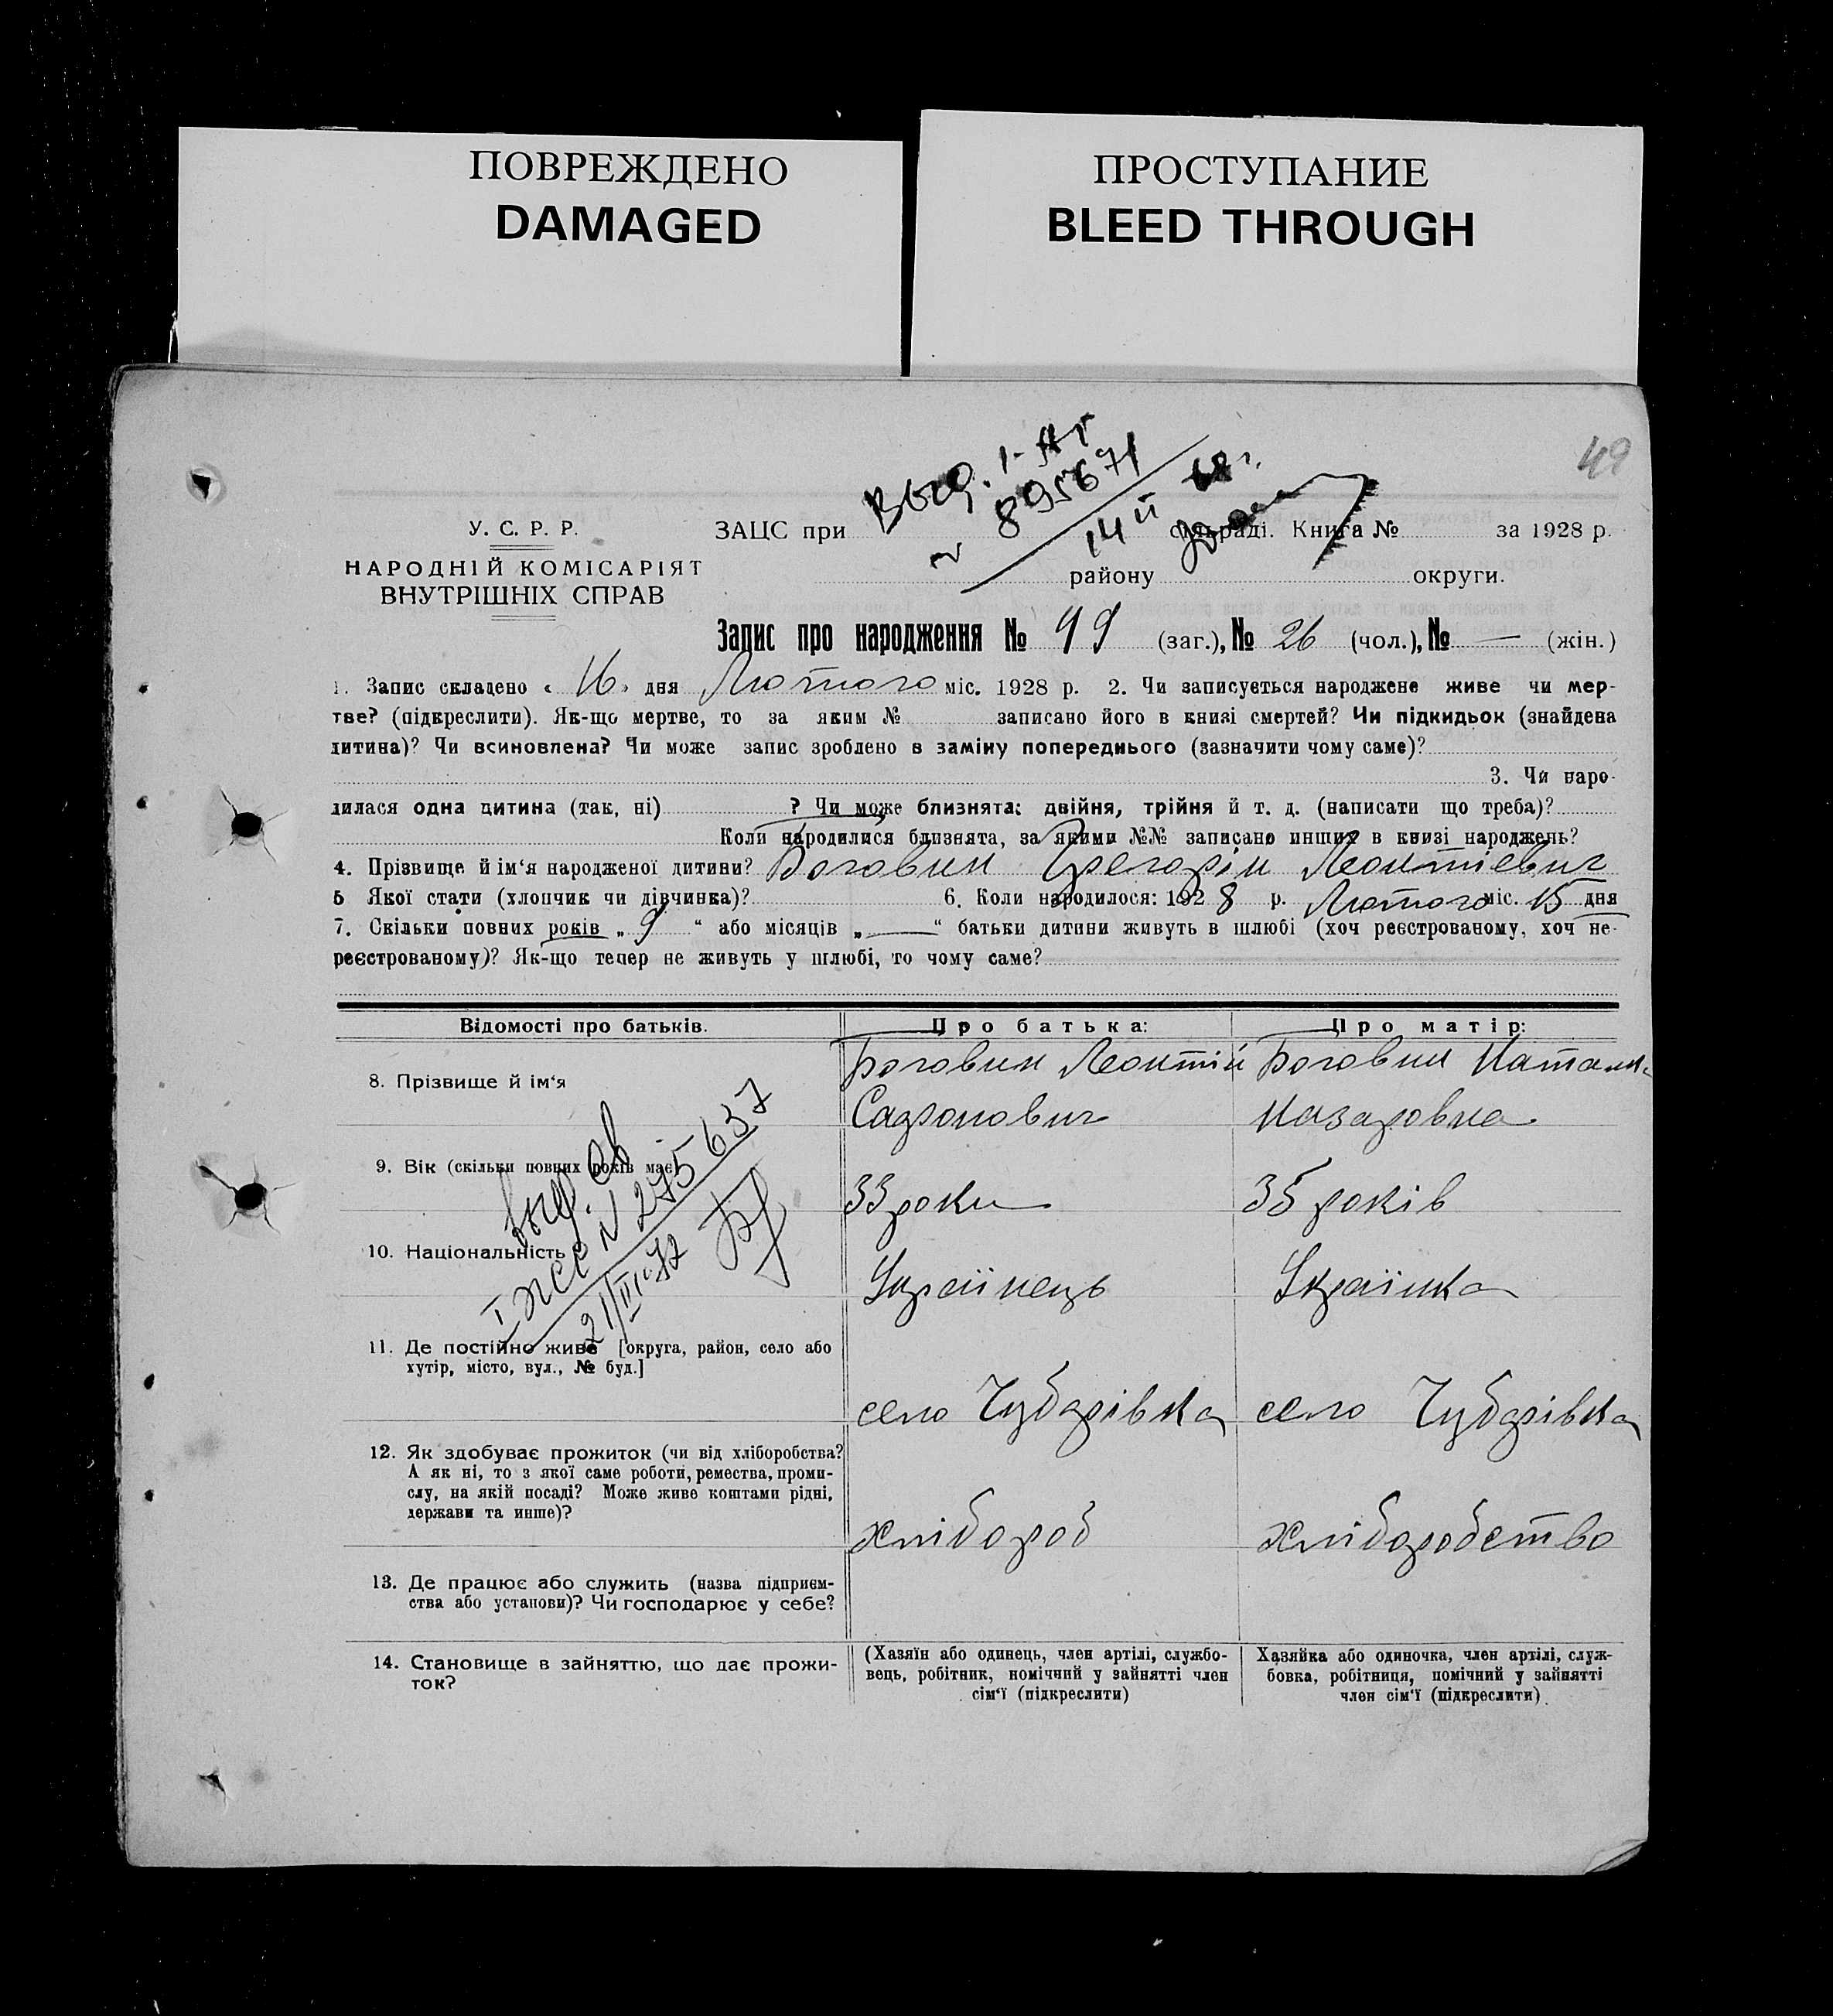 ПОВРЕЖДЕНО
DAMAGED
ПРОСТУПАНИЕ
BLEED THROUGH
49
Выд. I-АГ
№ 895671
14 II 68 г.
У. С. Р. Р.
НАРОДНІЙ КОМІСАРІЯТ
ВНУТРІШНІХ СПРАВ
ЗАЦС при сільраді. Книга № за 1928 р.
району округи.
Запис про народження № 49 (заг.), № 26 (чол.), № — (жін.)
1. Запис складено « 16 » дня Лютого міс. 1928 р. 2. Чи записується народжене живе чи мер-
тве? (підкреслити). Як-що мертве, то за яким № записано його в книзі смертей? Чи підкидьок (знайдена
дитина)? Чи всиновлена? Чи може запис зроблено в заміну попереднього (зазначити чому саме)?
3. Чи наро-
дилася одна дитина (так, ні) ? Чи може близнята: двійня, трійня й т. д. (написати що треба)?
Коли народилися близнята, за якими №№ записано инших в книзі народжень?
4. Прізвище й ім‘я народженої дитини? Боговин Грегорій Леонтієвич
5 Якої стати (хлопчик чи дівчинка)? 6. Коли народилося: 1928 р. Лютого міс. 15 дня
7. Скільки повних років „ 9 “ або місяців „ — “ батьки дитини живуть в шлюбі (хоч реєстрованому, хоч не-
реєстрованому)? Як-що тепер не живуть у шлюбі, то чому саме?
Відомості про батьків. Про батька: Про матір:
8. Прізвище й ім‘я
Боговин Леонтій Боговин Наталка
Сафронович Назаровна
9. Вік (скільки повних років має)
33 роки 35 років
10. Національність
Українець Українка
Выд. св
I ЖС № 275637
21/III-72
11. Де постійно живе [округа, район, село або
хутір, місто, вул., № буд.]
село Чубарівка село Чубарівка
12. Як здобуває прожиток (чи від хліборобства?
А як ні, то з якої саме роботи, ремества, проми-
слу, на якій посаді? Може живе коштами рідні,
держави та инше)?
хлібороб хліборобство
13. Де працює або служить (назва підприєм-
ства або установи)? Чи господарює у себе?
14. Становище в зайняттю, що дає прожи-
ток?
(Хазяїн або одинець, член артілі, службо-
вець, робітник, помічний у зайнятті член
сім‘ї (підкреслити)
Хазяйка або одиночка, член артілі, служ-
бовка, робітниця, помічний у зайнятті
член сім‘ї (підкреслити)